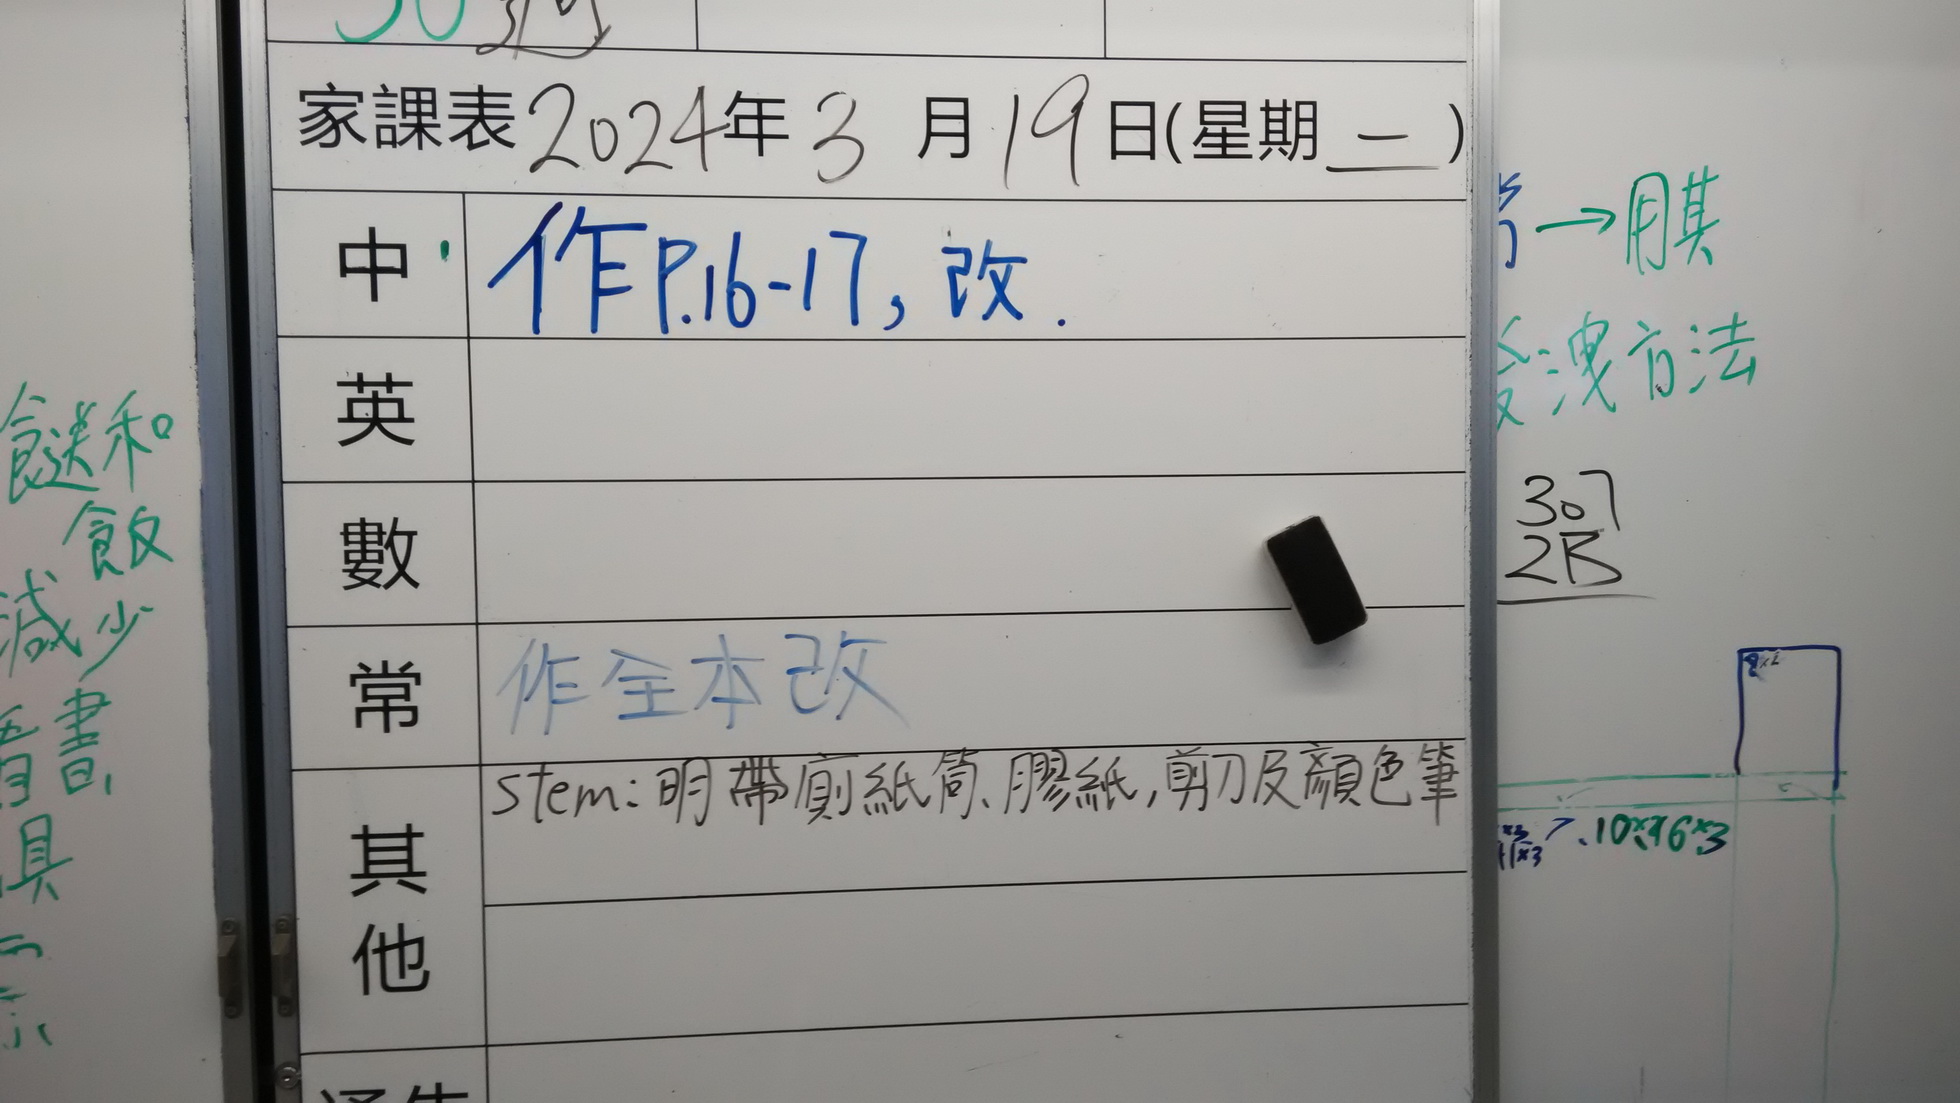 家課表2024年3月19日(星期二)
中 作P.16-17, 改.
英
數
常 作全本改
其他 stem: 明帶廁紙筒、膠紙,剪刀及顏色筆
→用其
洩方法
307
2B
和
飲
減少
書
具